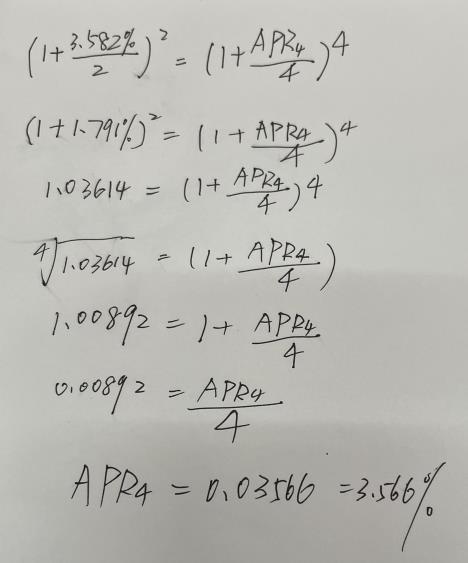 (1+3.582%/2)² = (1+APR₄/4)⁴
(1+1.791%)² = (1+APR₄/4)⁴
1.03614 = (1+APR₄/4)⁴
⁴√1.03614 = (1+APR₄/4)
1.00892 = 1+APR₄/4
0.00892 = APR₄/4
APR₄ = 0.03566 = 3.566%